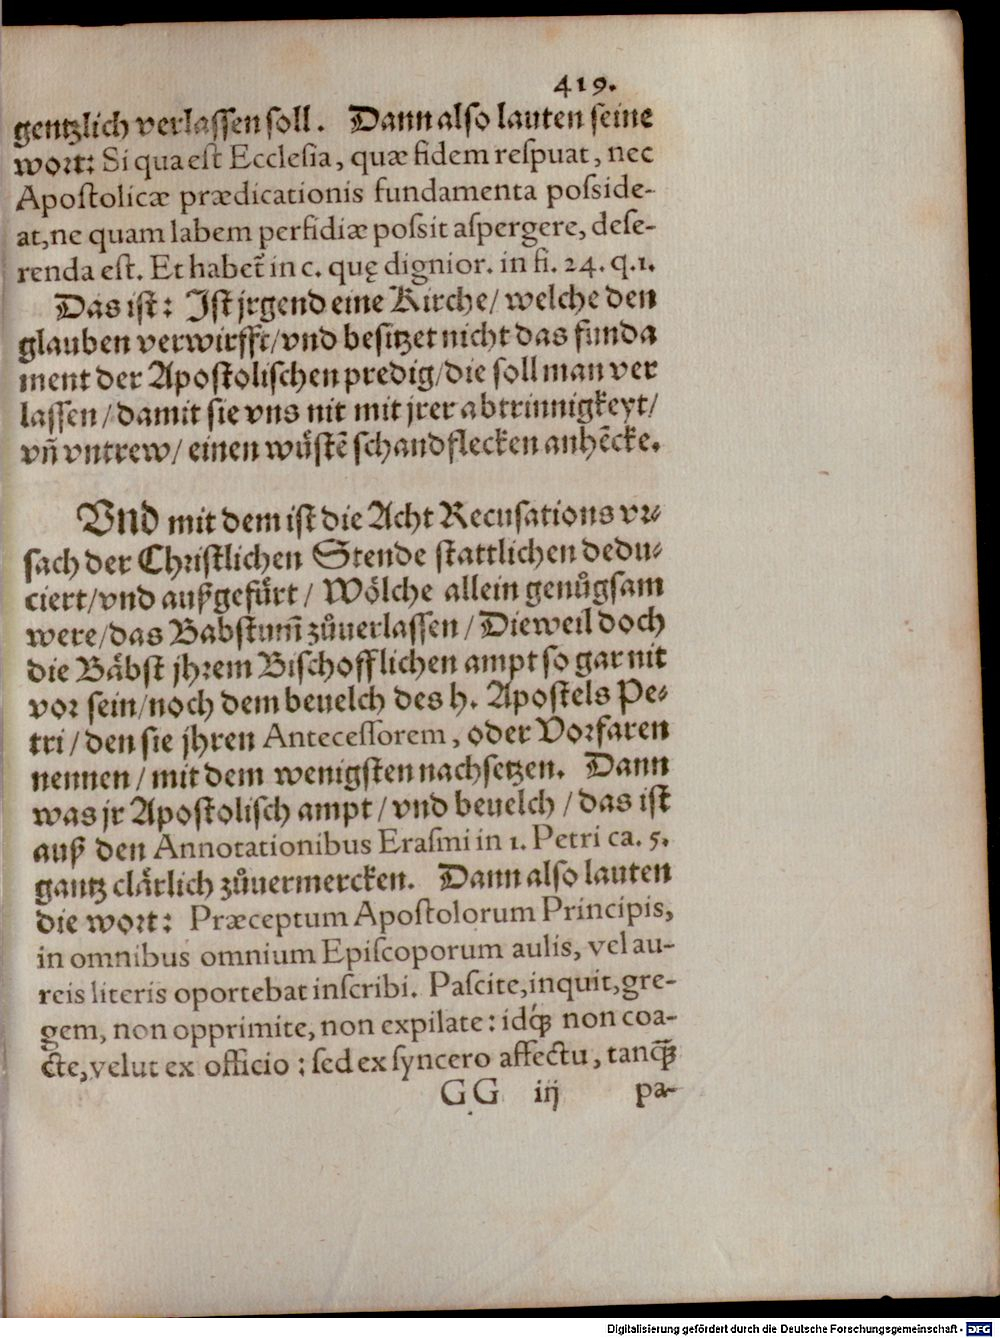 419.
gentzlich verlassen soll. Dann also lauten seine
wort: Si qua est Ecclesia, quæ fidem respuat, nec
Apostolicæ prædicationis fundamenta posside-
at, ne quam labem perfidiæ possit aspergere, dese-
renda est. Et habet̃ in c. quę dignior. in fi. 24. q.1.
Das ist: Ist jrgend eine Kirche/ welche den
glauben verwirfft/vnd besitzet nicht das funda
ment der Apostolischen predig/die soll man ver
lassen/damit sie vns nit mit jrer abtrinnigkeyt/
vñ vntrew/ einen wuͤstẽ schandflecken anhẽcke.
Vnd mit dem ist die Acht Recusations vr-
sach der Christlichen Stende stattlichen dedu-
ciert/vnd außgefuͤrt/ Woͤlche allein genuͦgsam
were/das Babstum̃ zuͦuerlassen/ Dieweil doch
die Baͤbst jhrem Bischofflichen ampt so gar nit
vor sein/noch dem beuelch des h. Apostels Pe-
tri/ den sie jhren Antecessorem, oder Vorfaren
nennen/ mit dem wenigsten nachsetzen. Dann
was jr Apostolisch ampt/ vnd beuelch/ das ist
auß den Annotationibus Erasmi in 1. Petri ca. 5.
gantz claͤrlich zuͦuermercken. Dann also lauten
die wort: Præceptum Apostolorum Principis,
in omnibus omnium Episcoporum aulis, vel au-
reis literis oportebat inscribi. Pascite, inquit, gre-
gem, non opprimite, non expilate: idq́ꝫ non coa-
cte, velut ex officio; sed ex syncero affectu, tanq̃ꝫ
GG iij pa-
Digitalisierung gefördert durch die Deutsche Forschungsgemeinschaft - DFG